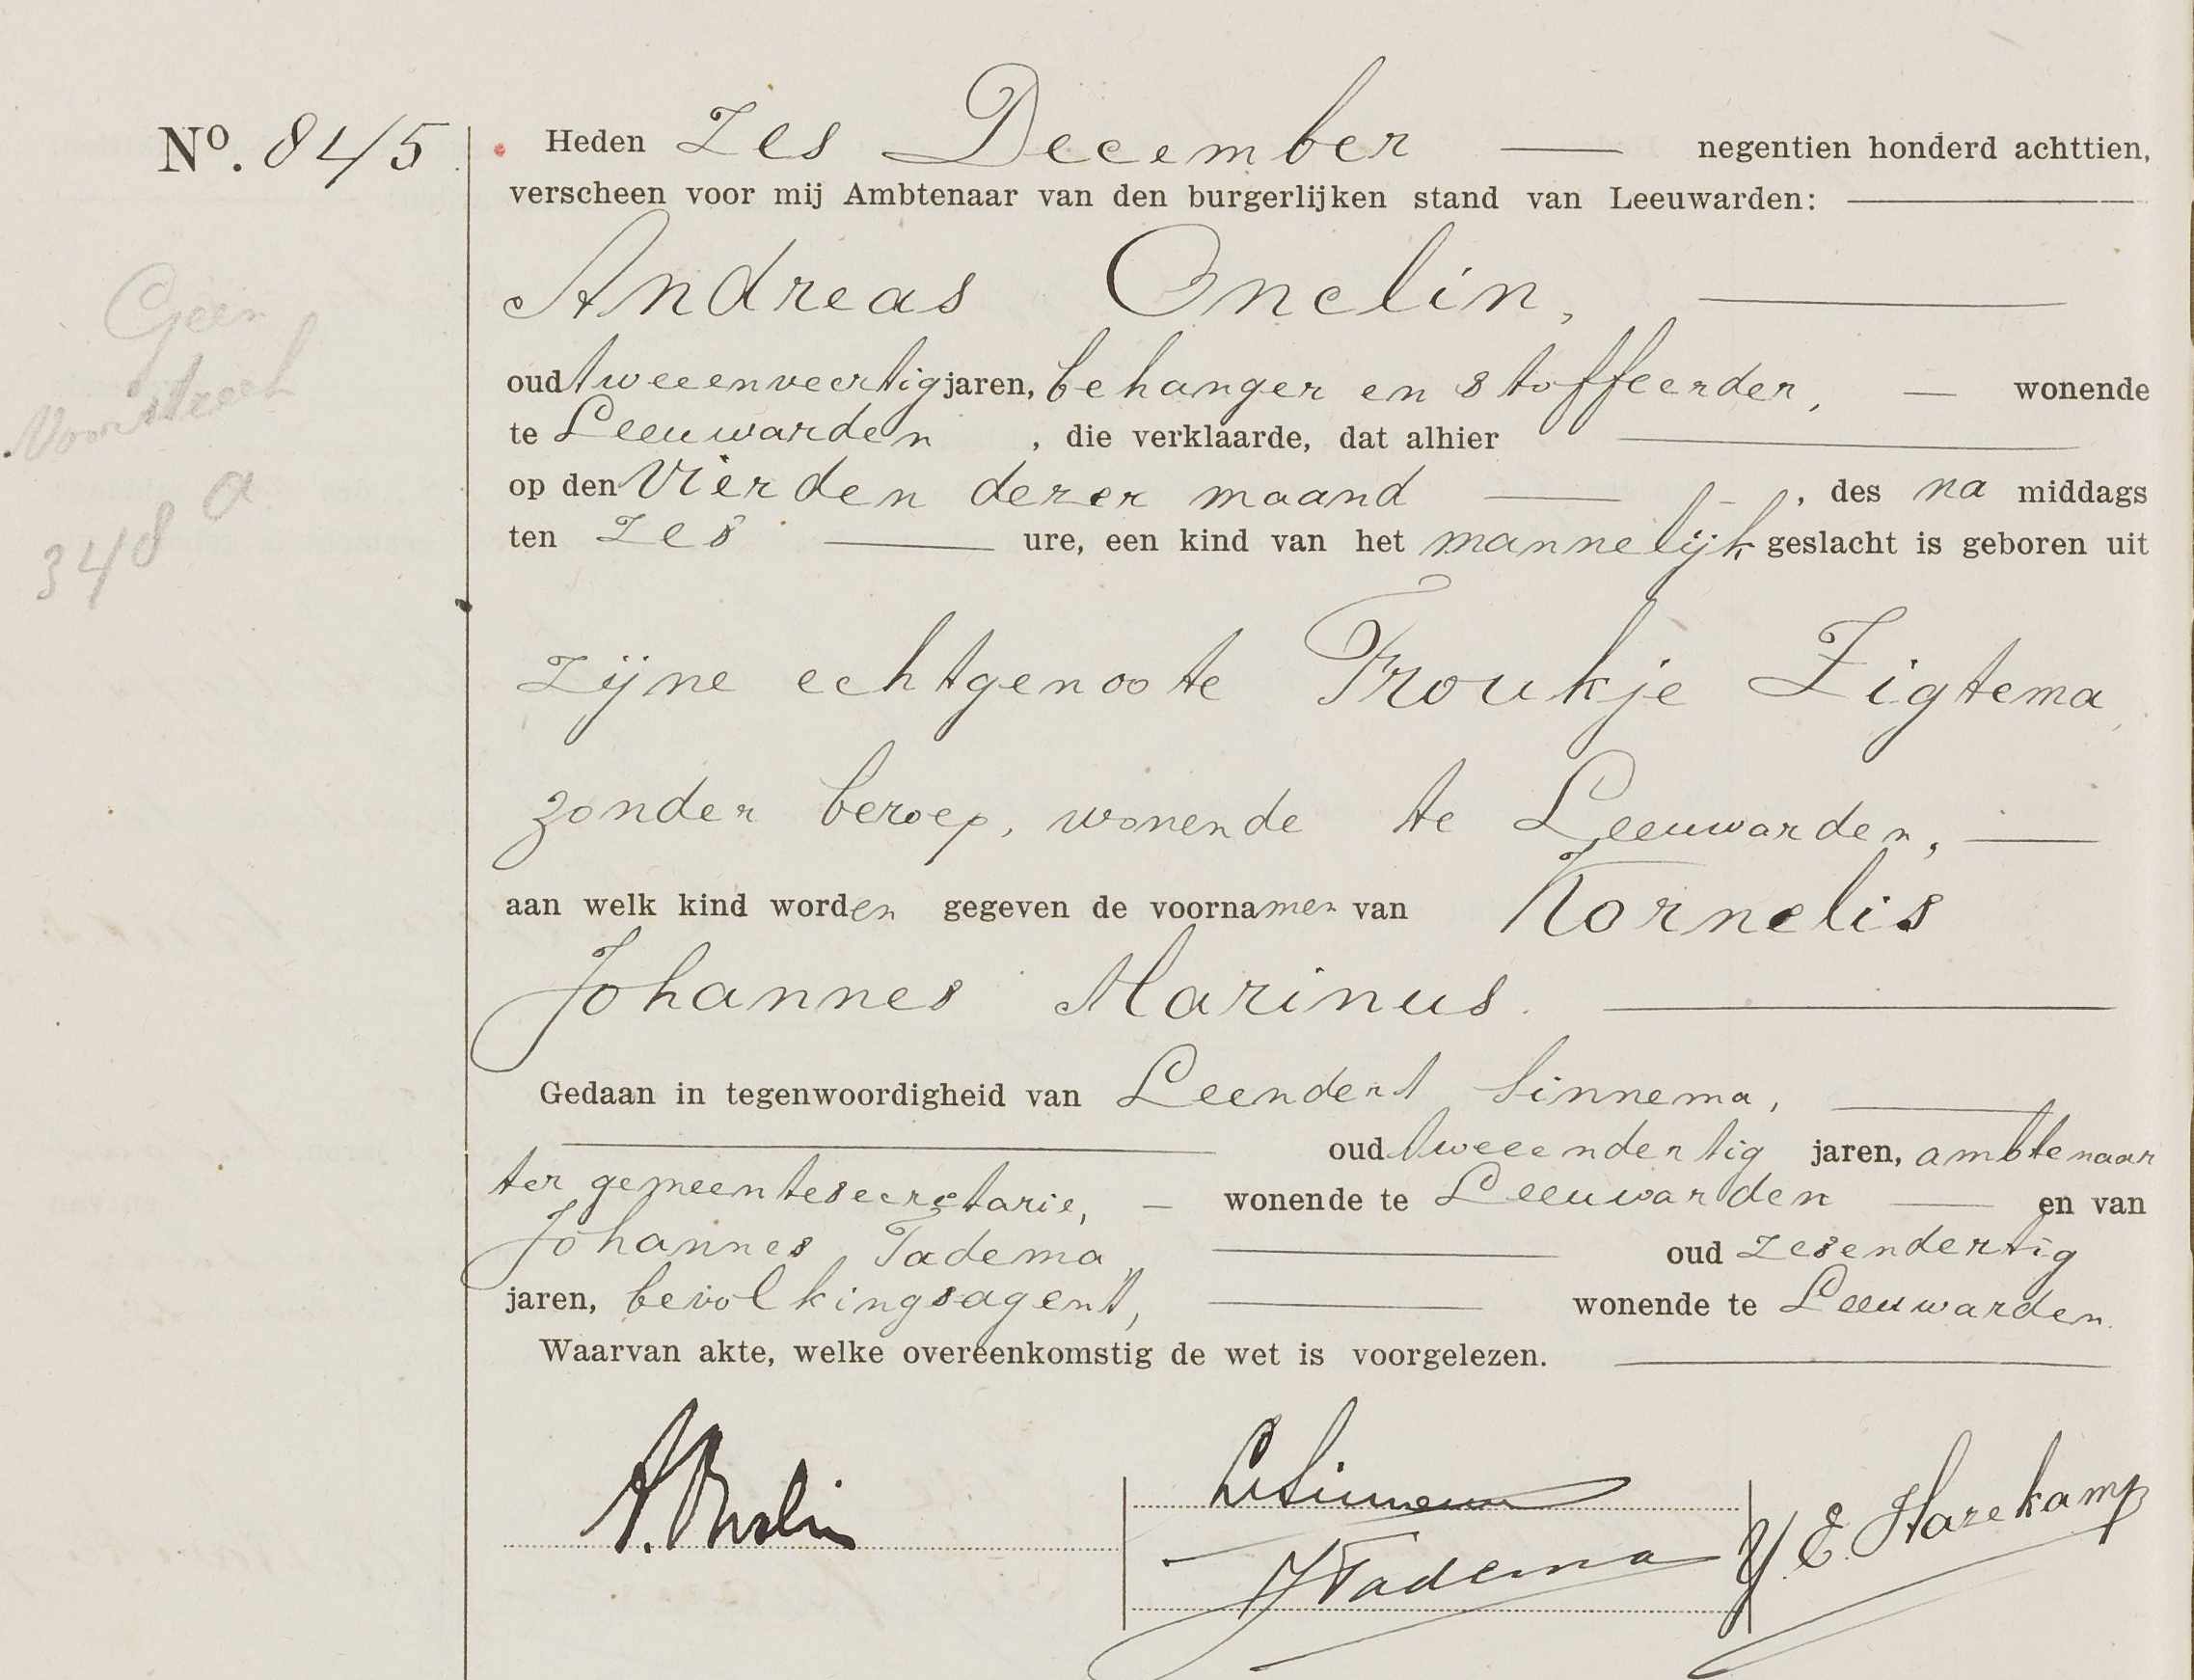 No. 845.
Heden Zes December negentien honderd achttien,
verscheen voor mij Ambtenaar van den burgerlijken stand van Leeuwarden:
Andreas Onclin,
oud tweeenveertig jaren, behanger en stoffeerder, wonende
te Leeuwarden , die verklaarde, dat alhier
op den vierden dezer maand , des na middags
ten zes ure, een kind van het mannelijk geslacht is geboren uit
zijne echtgenoote Froukje Zigtema,
zonder beroep, wonende te Leeuwarden,
aan welk kind worden gegeven de voornamen van Kornelis
Johannes Marinus.
Gedaan in tegenwoordigheid van Leendert Sinnema,
oud tweeendertig jaren, ambtenaar
ter gemeentesecretarie, wonende te Leeuwarden en van
Johannes Tadema, oud zesendertig
jaren, bevolkingsagent, wonende te Leeuwarden.
Waarvan akte, welke overeenkomstig de wet is voorgelezen.
Geen
Voorstreek
348 a
A. Onclin
L. Sinnema
J Tadema
Y. E. Hazekamp